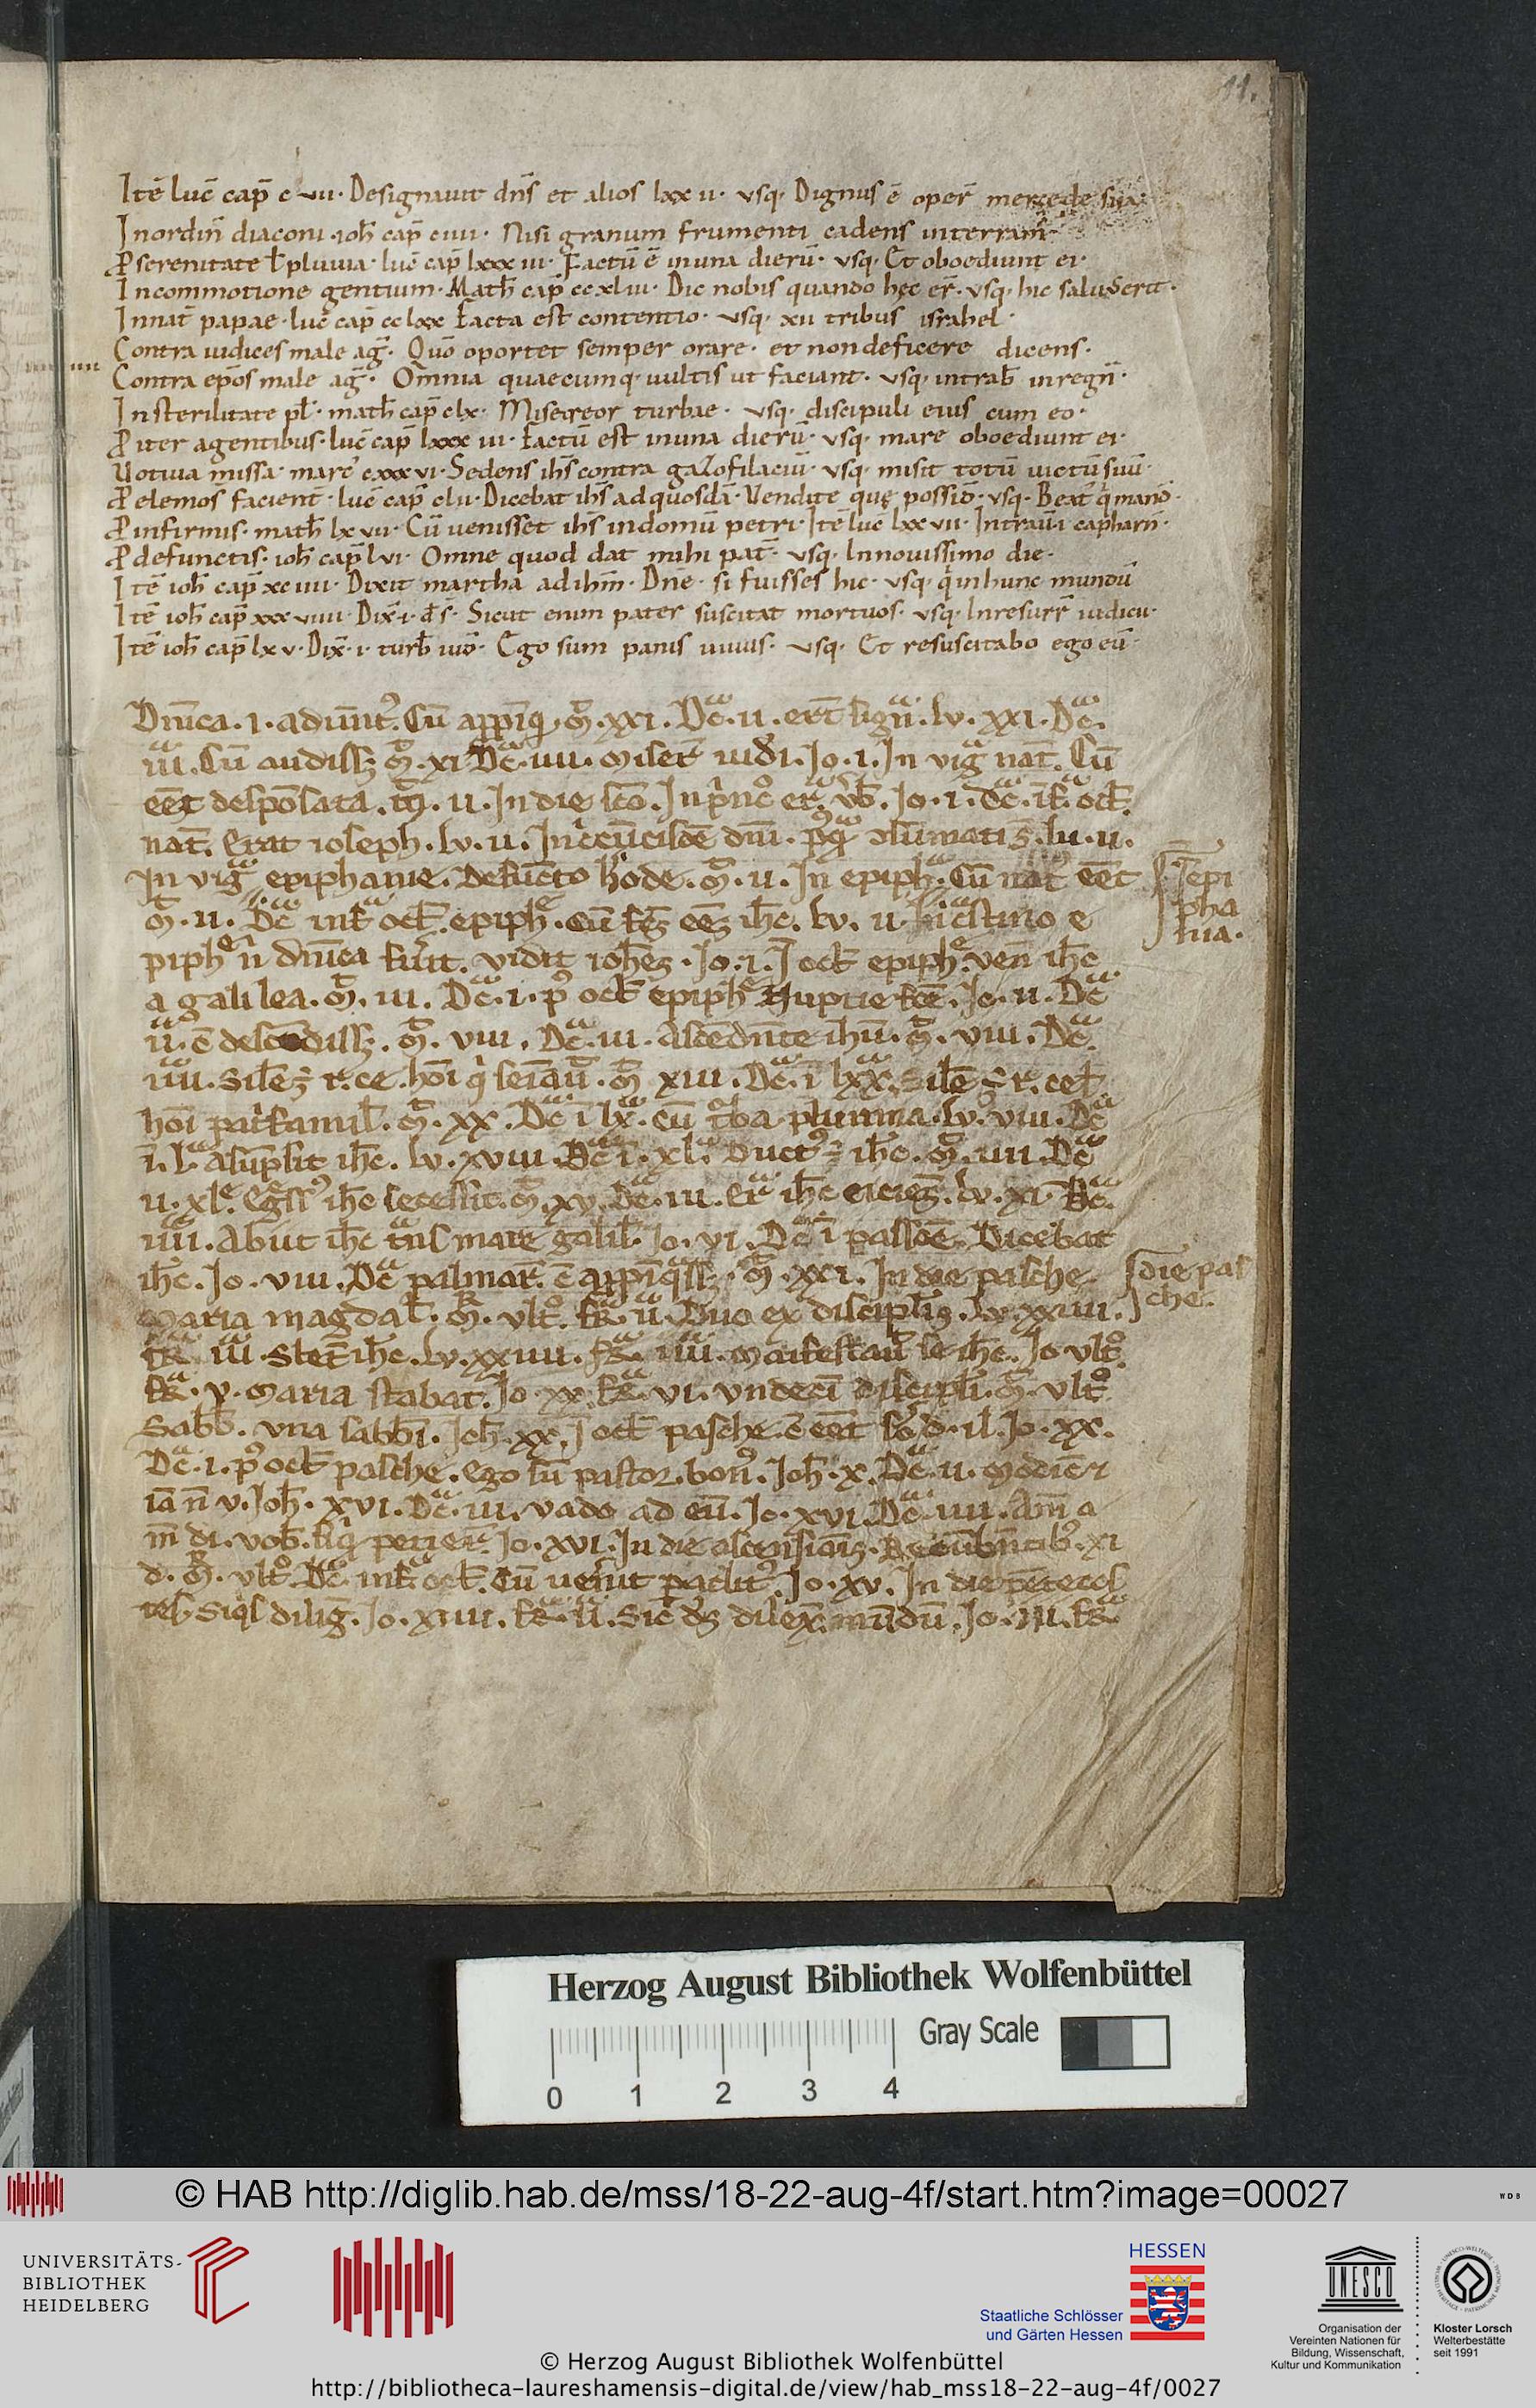 11.
Itē luc̄ cap̄ c vii· Designauit dn̄s et alios lxx ii· usq· Dignus ē oper̄ mercede sua·
Inordin̄ diaconi ioh̄ cap̄ ciiii· Nisi granum frumenti cadens interram̄
P serenitate ł pluuia· luc̄ cap̄ lxxx iii· Factū ē inuna dierū· usq· Et oboediunt ei·
Incommotione gentium· Math̄ cap̄ cc xliii· Dic nobis quando hęc er̄· usq· hic saluꝰ erit·
Innat̄ papae· luc̄ cap̄ cc lxx facta est contentio· usq· xii tribus israhel·
Contra iudices male aḡ· Quō oportet semper orare· et nondeficere dicens·
Contra ep̄os male aḡ· Omnia quaecumq· uultis ut faciant· usq· intrab̄ inregn̄·
Insterilitate pl̄· math̄ cap̄ clx· Misereor turbae· usq· discipuli eius cum eo·
P iter agentibus· luc̄ cap̄ lxxx iii· factū est inuna dierū· usq· mare oboediunt ei·
Uotiua missa· marc̄ cxxx vi· Sedens ih̄s contra gazofilaciū· usq· misit totū uictū suū·
P elemos facient̄· luc̄ cap̄ clii· Dicebat ih̄s adquosdā· Vendite quę possid̄· usq· Beat᷒ q mand̄·
P infirmis· math̄ lx vii· Cū uenisset ih̄s indomū petri· Itē luc̄ lxx vii· Intrauit i capharn̄·
P defunctis· ioh̄ cap̄ lvi· Omne quod dat mihi pat̄· usq· Innouissimo die·
Itē ioh̄ cap̄ xc iiii· Dixit martha ad ihm̄· Dn̄e· si fuisses hic· usq· q inhunc mundū
Itē ioh̄ cap̄ xxx viiii· Dix̄· i· d̄s· Sicut enim pater suscitat mortuos· usq· Inresurr̄ iudicii·
Itē ioh̄ cap̄ lx v· Dix̄· i· turb̄ iud̄· Ego sum panis uiuus· usq· Et resuscitabo ego eū·
Dn̄ica· i· aduent᷒. Cū app̄inq̄· m̄· xxi. Dc̄· ii· ert̄ sign̄· lv· xxi· Dc̄.
iii. Cū audiss; m̄· xi Dc̄· iiii· miser̄ iud̄i· Jo· i· In viḡ nat̄. Cū
eēt despōsata. m̄· ii· In die sc̄o. In p̄nc̄ er̄ v̄b. Jo· i· dc̄· īf̄· oct̄.
nat̄. Erat ioseph. lv. ii. In circūcisōe dn̄i. p̄q̄ ꝯsūmati s̄. lu· ii.
In viḡ epiphanie. Defūcto h̄ode. m̄· ii. In epiph̄. Cū nat᷒ eēt
epi
pha
nia.
m̄· ii. Dc̄ inf̄ oct̄. epiph̄· cū f̄ eēt ih̄c. lv. ii·
piph̄ n̄ dn̄ica fūit. vidit ioh̄es· Jo· i· J oct̄ epiph̄. ven̄ ih̄c
a galilea. m̄. iii. Dc̄· i· p᷒ oct̄ epiph̄ Nuptie fc̄e. Jo. ii. Dc̄
ii. c̄ descēdiss;. m̄. viii. Dc̄· iii· Ascēdn̄te ih̄u. m̄. viii. Dc̄.
iiii. Sil̄e ē r. ce. hōi q seīau. m̄ xiii. Dc̄· ī lxx. Sil̄e ē r. cel̄
hōi pat̄famil̄. m̄. xx. Dc̄ ī lx. cū t̄ba plurima. lv. viii. Dc̄
ī. l· asūpsit ih̄c. lv. xviii. Dc̄ ī. xl. Duct᷒ ē ih̄c. m̄. iiii. Dc̄
ii. xl. Eg̅ss᷒ ih̄c secessit. m̄. xv. Dc̄. iii. Er̄ ih̄c eicieꝰ. lv. xi. Dc̄.
iiii. Abiit ih̄c t̄ns mare galil̄. Jo. vi. Dc̄ ī passiōe. Dicebat
ih̄c. Jo. viii. Dc̄ palmar̄. c̄ app̄inq̄ss;. m̄. xxi. In die pasche.
die pas
che.
Maria magdal̄. m̄. vlt̄. fr̄. ii. Duo ex discipl̄is. lv. xxiiii.
fr̄ iii. Stet̄ ih̄c. lv. xxiiii. fr̄. iiii. Maīfestau se ih̄c. Jo vlt̄.
fr̄. v. Maria stabat. Jo. xx. fr̄. vi. vndecī discipl̄i. m̄. vlt̄.
Sabb̄. vna sabbī. Joh̄. xx. J oct̄ pasche. c̄ eēt so᷒. d. il̄. Jo. xx.
Dc̄. i. p᷒ oct̄ pasche. Ego sū pastor. bon᷒. Joh̄. x. Dc̄. ii. Modicū ⁊
iā n̄ v. Joh̄. xvi. Dc̄. iii. vado ad eū. Jo. xvi. Dc̄. iiii. Am̄ a
m̄ di. vob̄. siq̄ petier̄. Jo. xvi. In die ascensiōis. Recūbn̄tib᷒. xi
d. m̄. vlt̄. Dc̄ inf̄ oct̄. Cū uen̄it paclit᷒. Jo. xv. In die pētecos
tes. Siqs dilig̅. Jo. xiiii. fr̄. ii. Sic d̄s dilex̄. mūdū. Jo. iii. fr̄
Herzog August Bibliothek Wolfenbüttel
Gray Scale
0 1 2 3 4
© HAB http://diglib.hab.de/mss/18-22-aug-4f/start.htm?image=00027
WDB
UNIVERSITÄTS-
BIBLIOTHEK
HEIDELBERG
HESSEN
Staatliche Schlösser
und Gärten Hessen
UNESCO
Organisation der
Vereinten Nationen für
Bildung, Wissenschaft,
Kultur und Kommunikation
Kloster Lorsch
Welterbestätte
seit 1991
© Herzog August Bibliothek Wolfenbüttel
http://bibliotheca-laureshamensis-digital.de/view/hab_mss18-22-aug-4f/0027